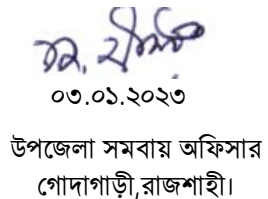 ০৩.০১.২০২৩
উপজেলা সমবায় অফিসার
গোদাগাড়ী,রাজশাহী।